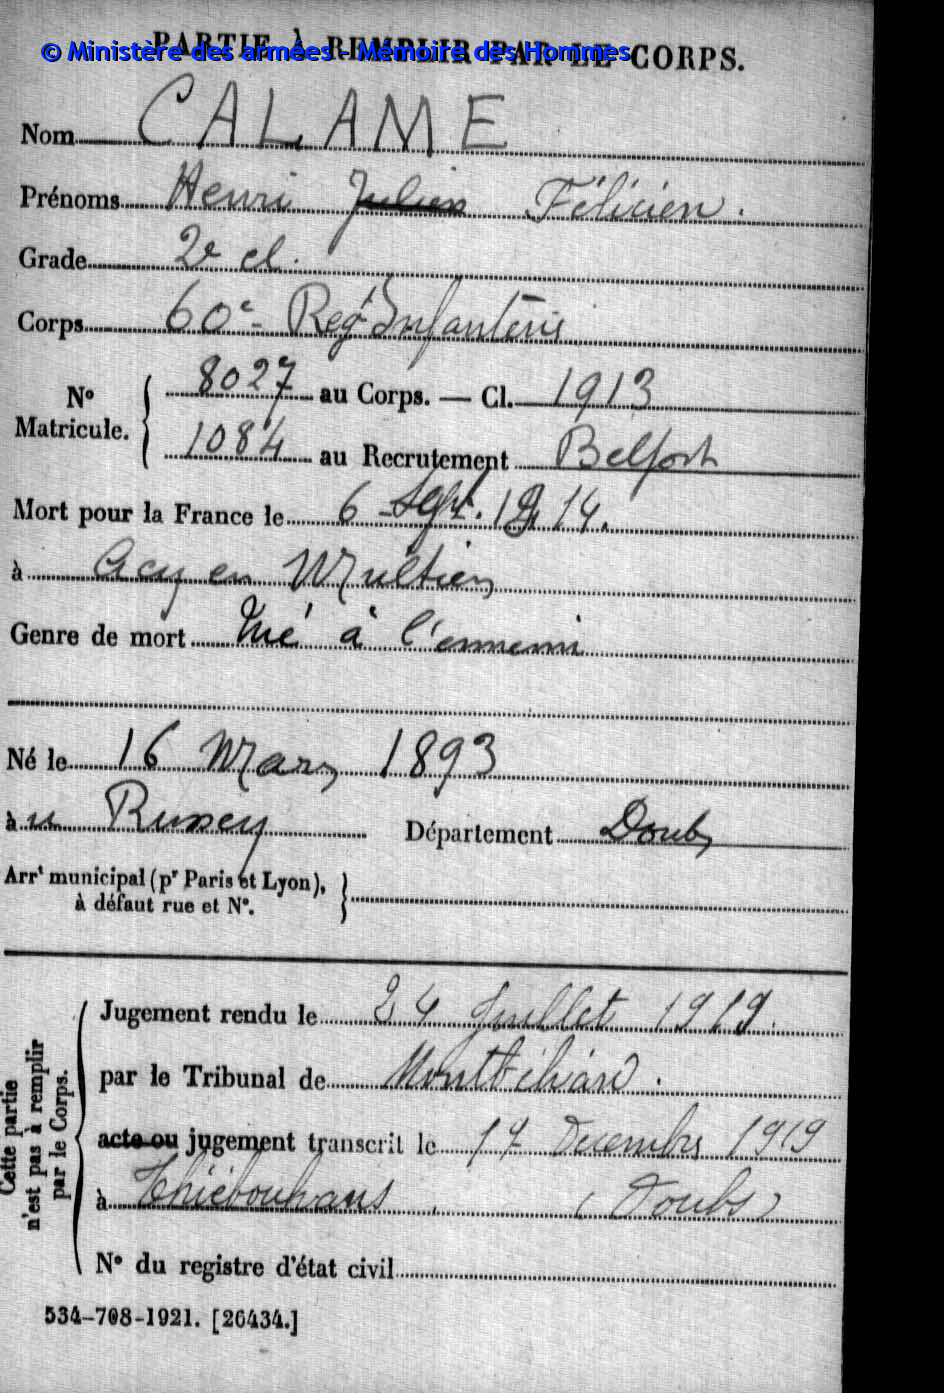 © Ministère des armées - Mémoire des Hommes
PARTIE À REMPLIR PAR LE CORPS.
Nom CALAME
Prénoms Henri Julien Félicien.
Grade 2e cl.
Corps 60e Rég' Infanterie
N° Matricule. 8027 au Corps. — Cl. 1913
1084 au Recrutement Belfort
Mort pour la France le 6 Sept. 1914.
à Acy en Multien
Genre de mort Tué à l'ennemi
Né le 16 Mars 1893
au Russey Département Doubs
Arrt municipal (pr Paris et Lyon),
à défaut rue et N°.
Cette partie
n'est pas à remplir
par le Corps.
Jugement rendu le 24 Juillet 1919.
par le Tribunal de Montbéliard.
acte ou jugement transcrit le 17 Décembre 1919
à Thiébouhans (Doubs)
N° du registre d'état civil
534-708-1921. [26434.]